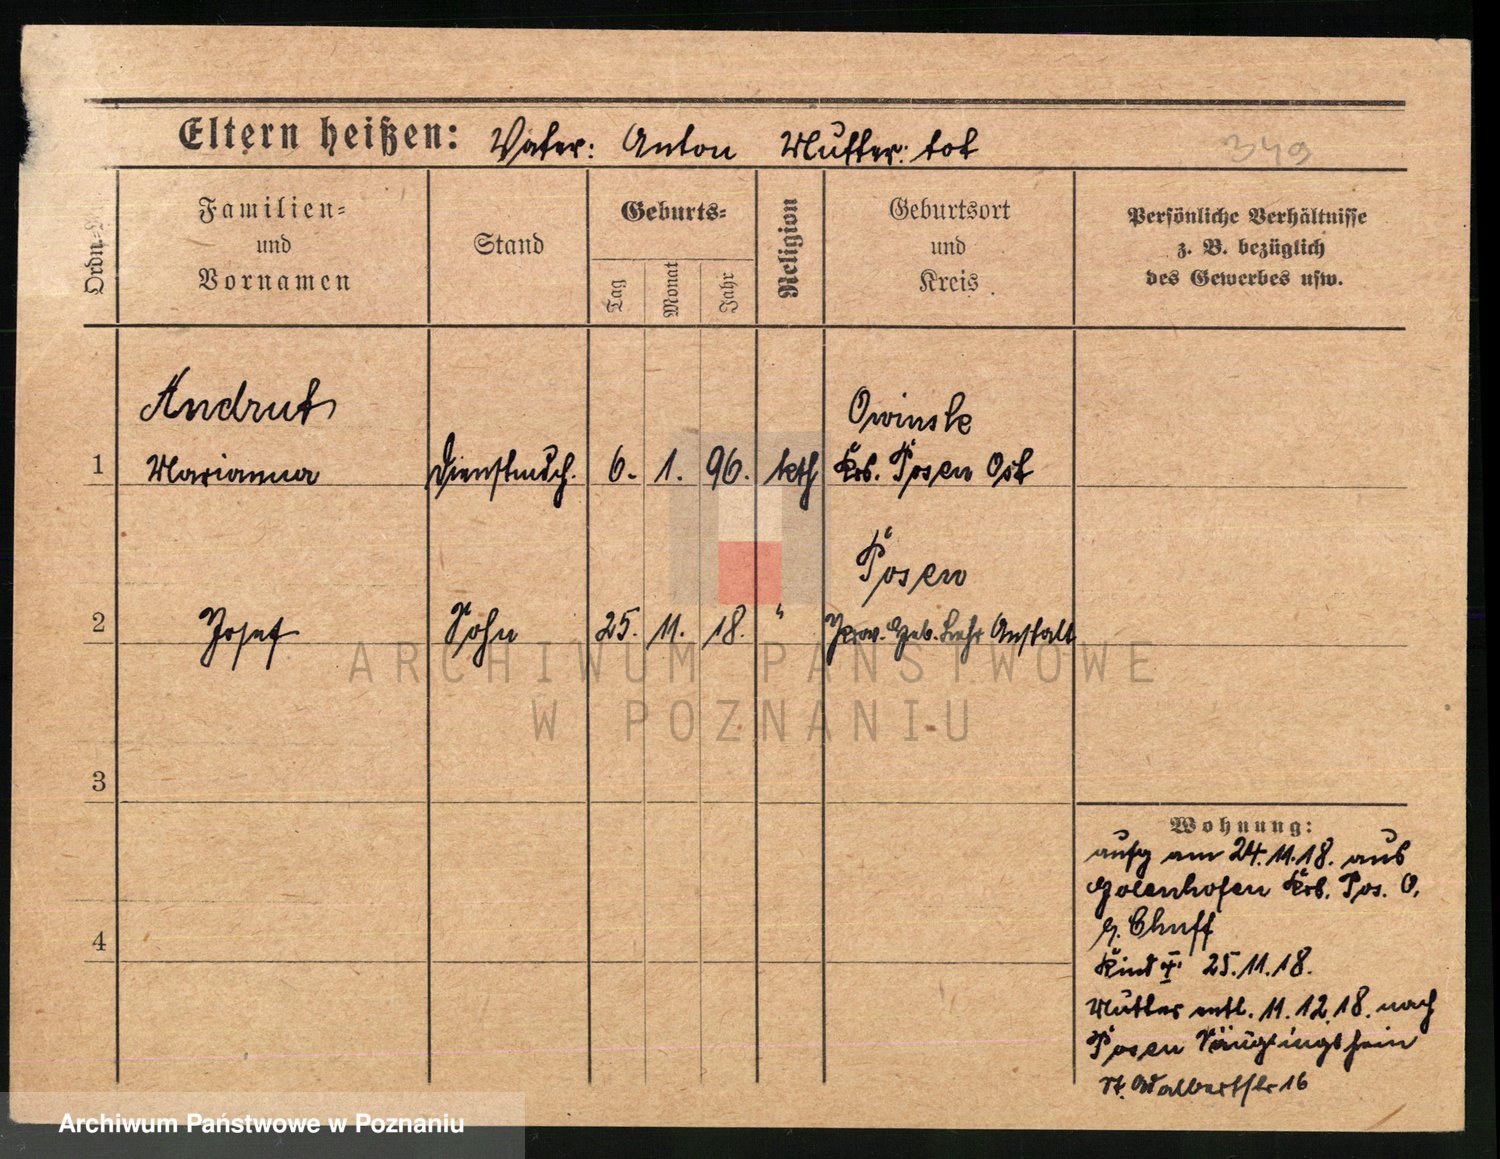 Eltern heißen: Vater: Anton Mutter: tot
349
Ordn.=
Familien=
und
Vornamen
Stand
Geburts=
Tag
Monat
Jahr
Religion
Geburtsort
und
Kreis
Persönliche Verhältnisse
z. B. bezüglich
des Gewerbes usw.
Andrut
Owinsk
1 Marianna Dienstmdch. 6. 1. 96. kth Krs. Posen Ost
Posen
2 Josef Sohn 25. 11. 18. " Prov. Heb. Lehr Anstalt
ARCHIWUM PAŃSTWOWE
W POZNANIU
3
4
Wohnung:
aufg am 24.11.18. aus
Golenhofen Krs. Pos. O.
Kind † 25.11.18.
Mutter entl. 11.12.18. nach
Posen Säuglingsheim
St. Adalbertstr 16
Archiwum Państwowe w Poznaniu